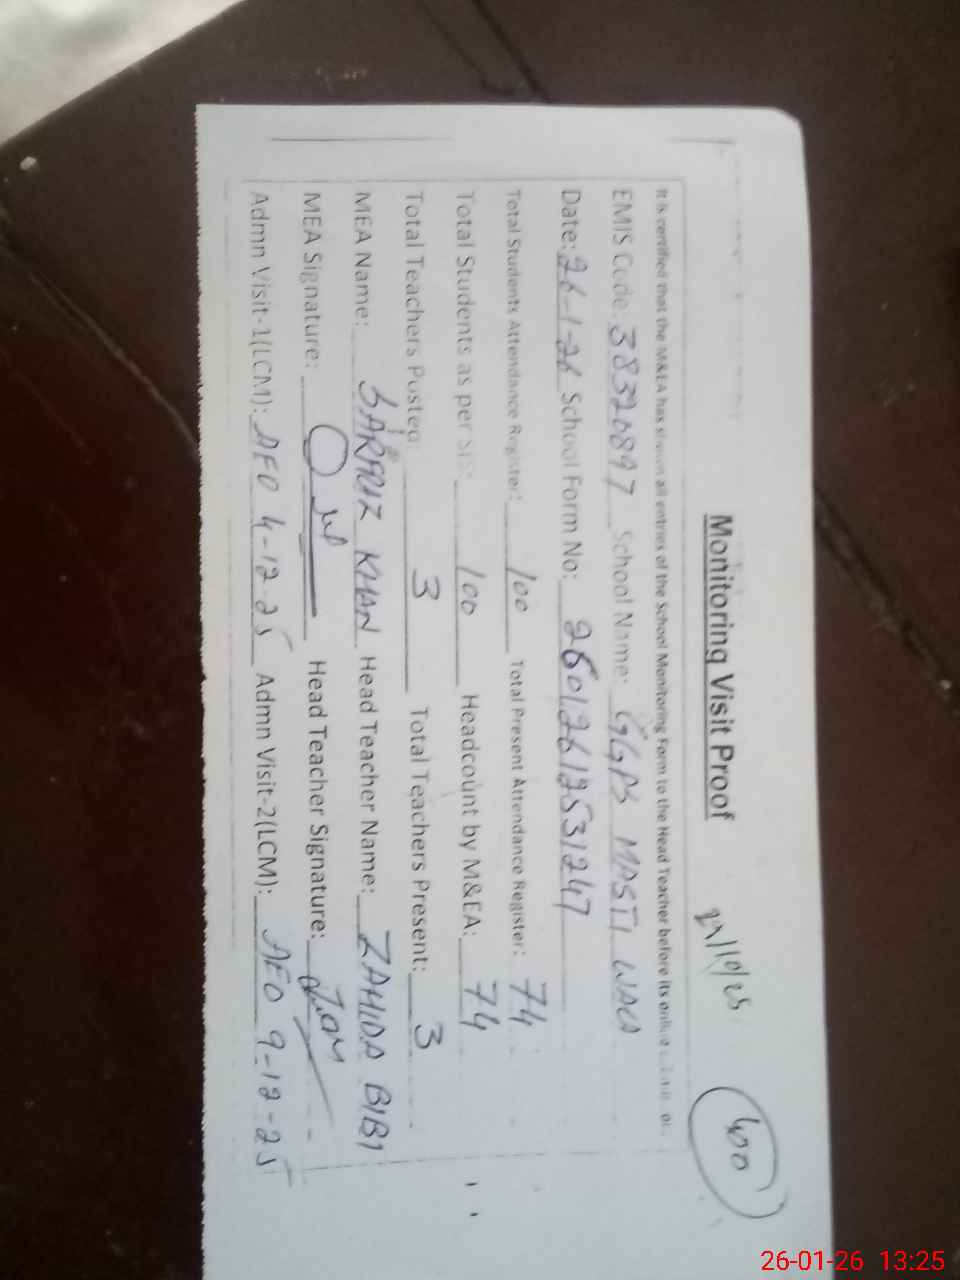 Monitoring Visit Proof
400
It is certified that the M&EA has shown all entries of the School Monitoring Form to the Head Teacher before its online
EMIS Code: 38320897 School Name: GGPS MASTI WALA
Date: 26-1-26 School Form No: 26012612531247
Total Students Attendance Register: 100 Total Present Attendance Register: 74
Total Students as per 100 Headcount by M&EA: 74
Total Teachers Posted: 3 Total Teachers Present: 3
MEA Name: SARFRAZ KHAN Head Teacher Name: ZAHIDA BIBI
MEA Signature: Head Teacher Signature:
Admn Visit-1(LCM): AEO 4-12-25 Admn Visit-2(LCM): AEO 9-12-25
26-01-26 13:25